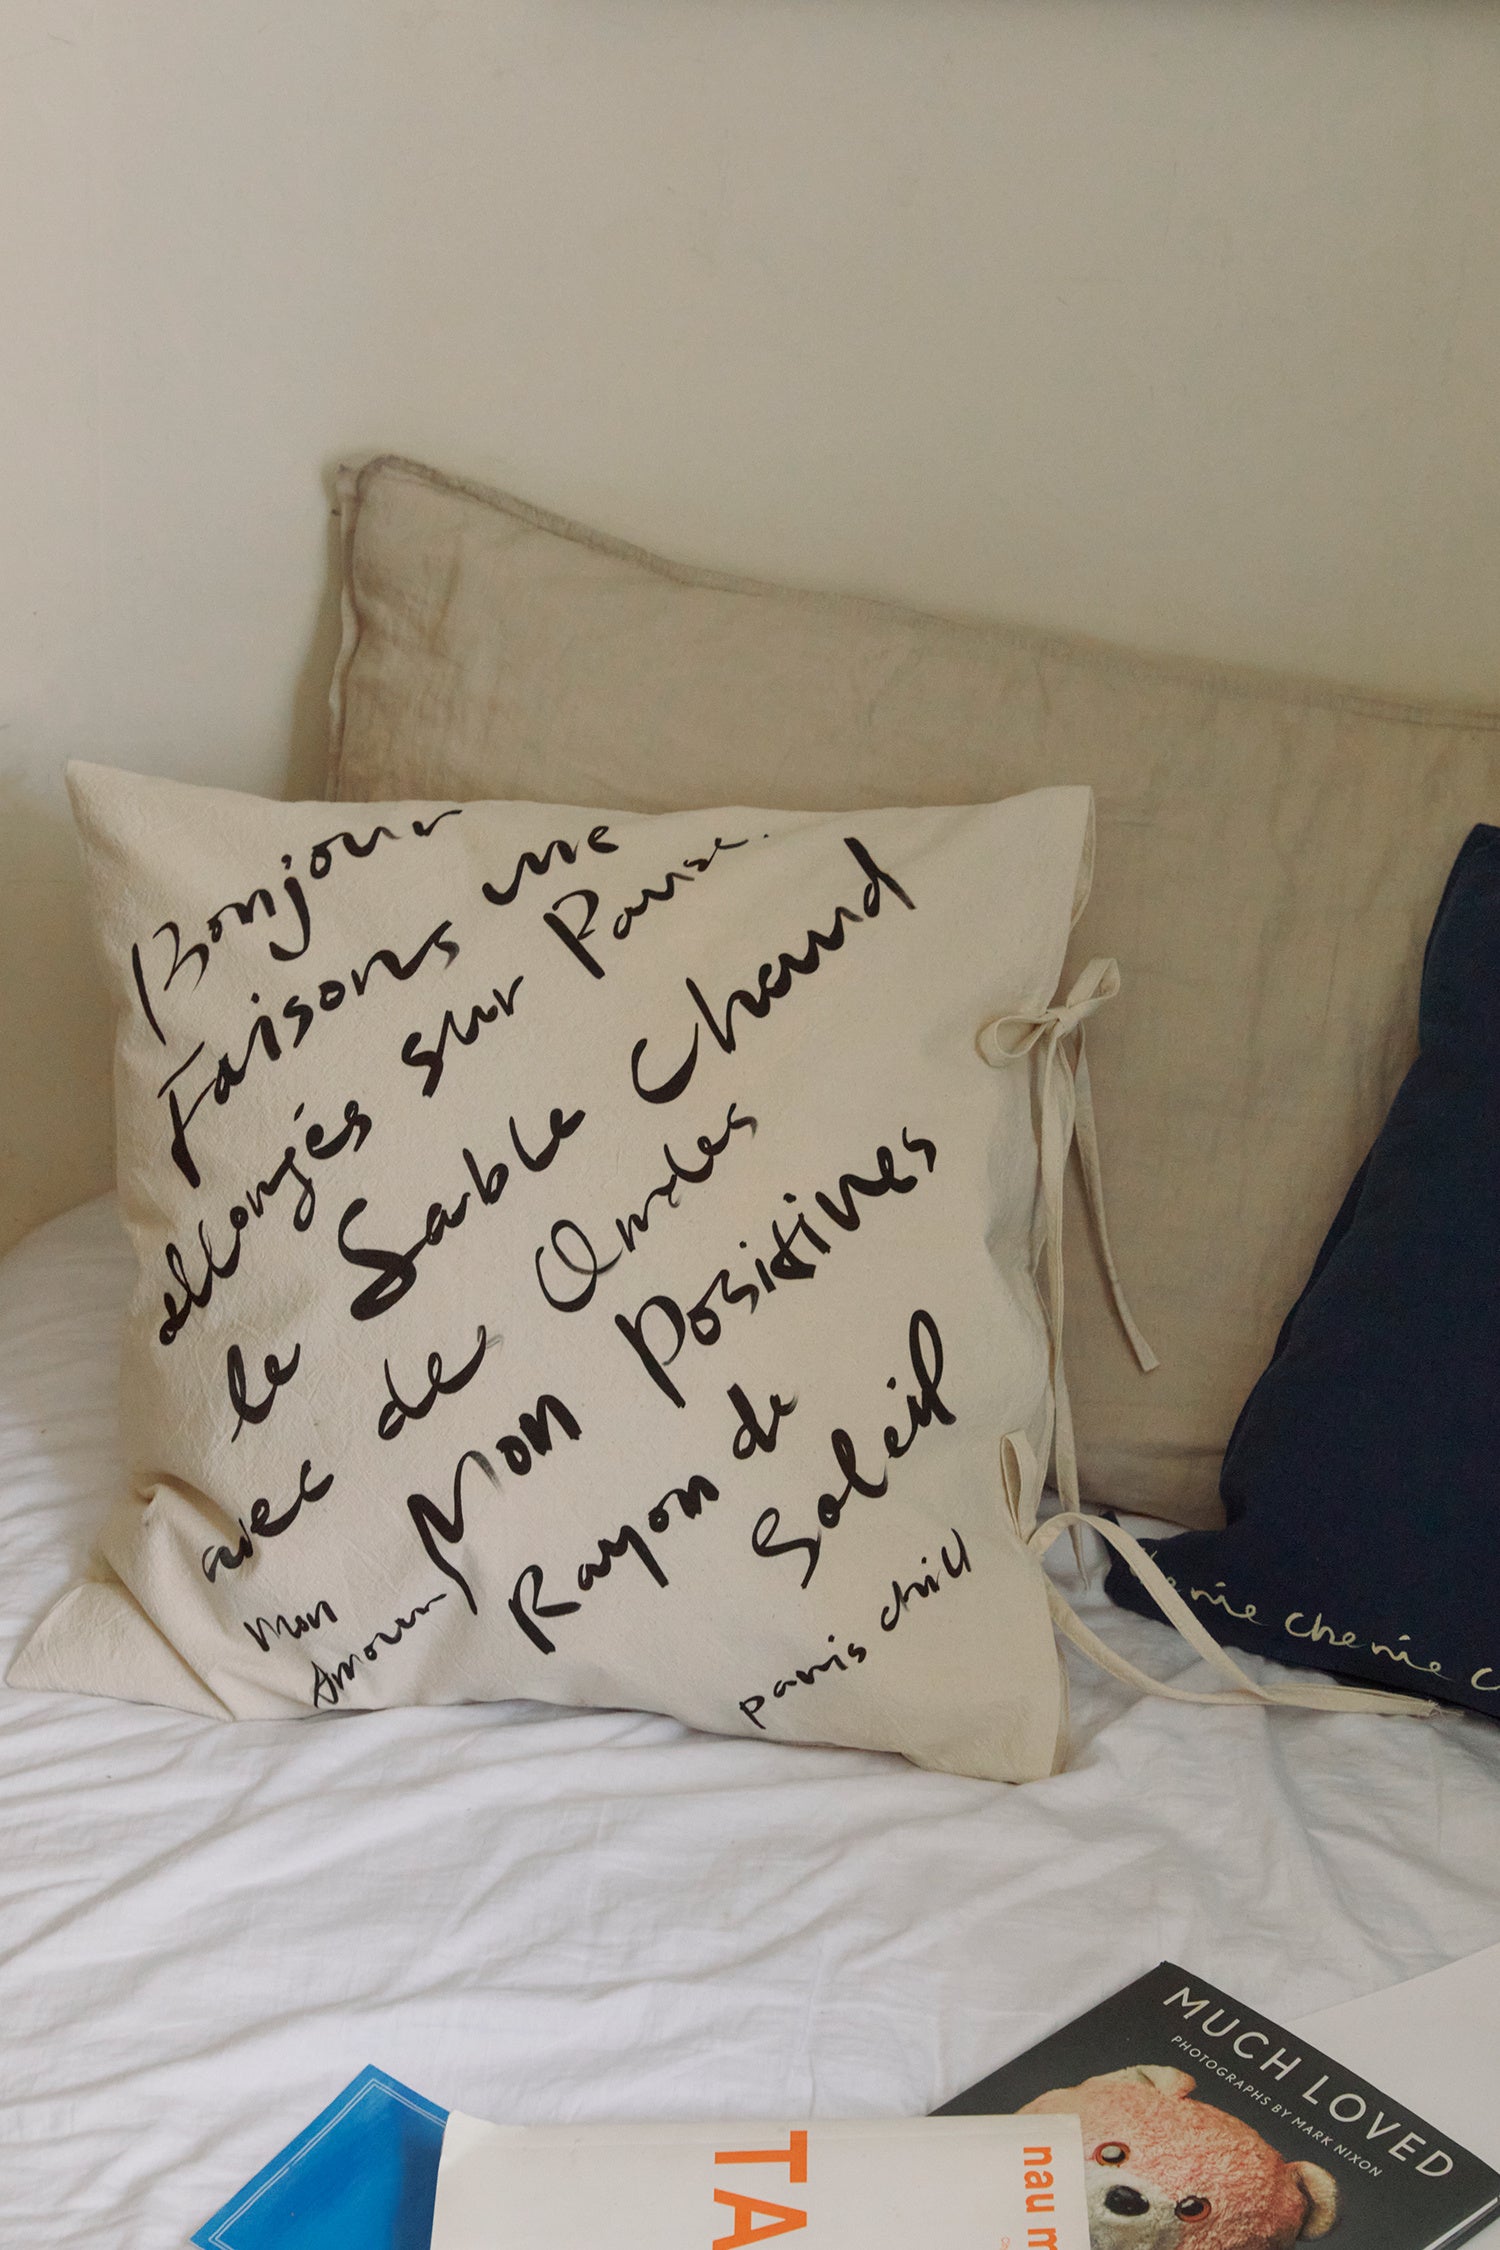 Bonjour
Faisons une
allongés sur Pause.
le Sable Chaud
avec de Ondes
Mon Positives
Rayon de
Soleil
mon
Amour
paris chill
cherie c
MUCH LOVED
PHOTOGRAPHS BY MARK NIXON
TA
nau m